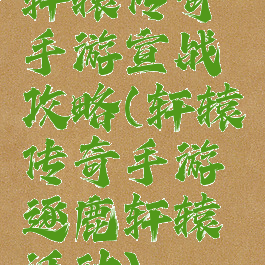 轩辕传奇
手游宣战
攻略(轩辕
传奇手游
逐鹿轩辕
活动)